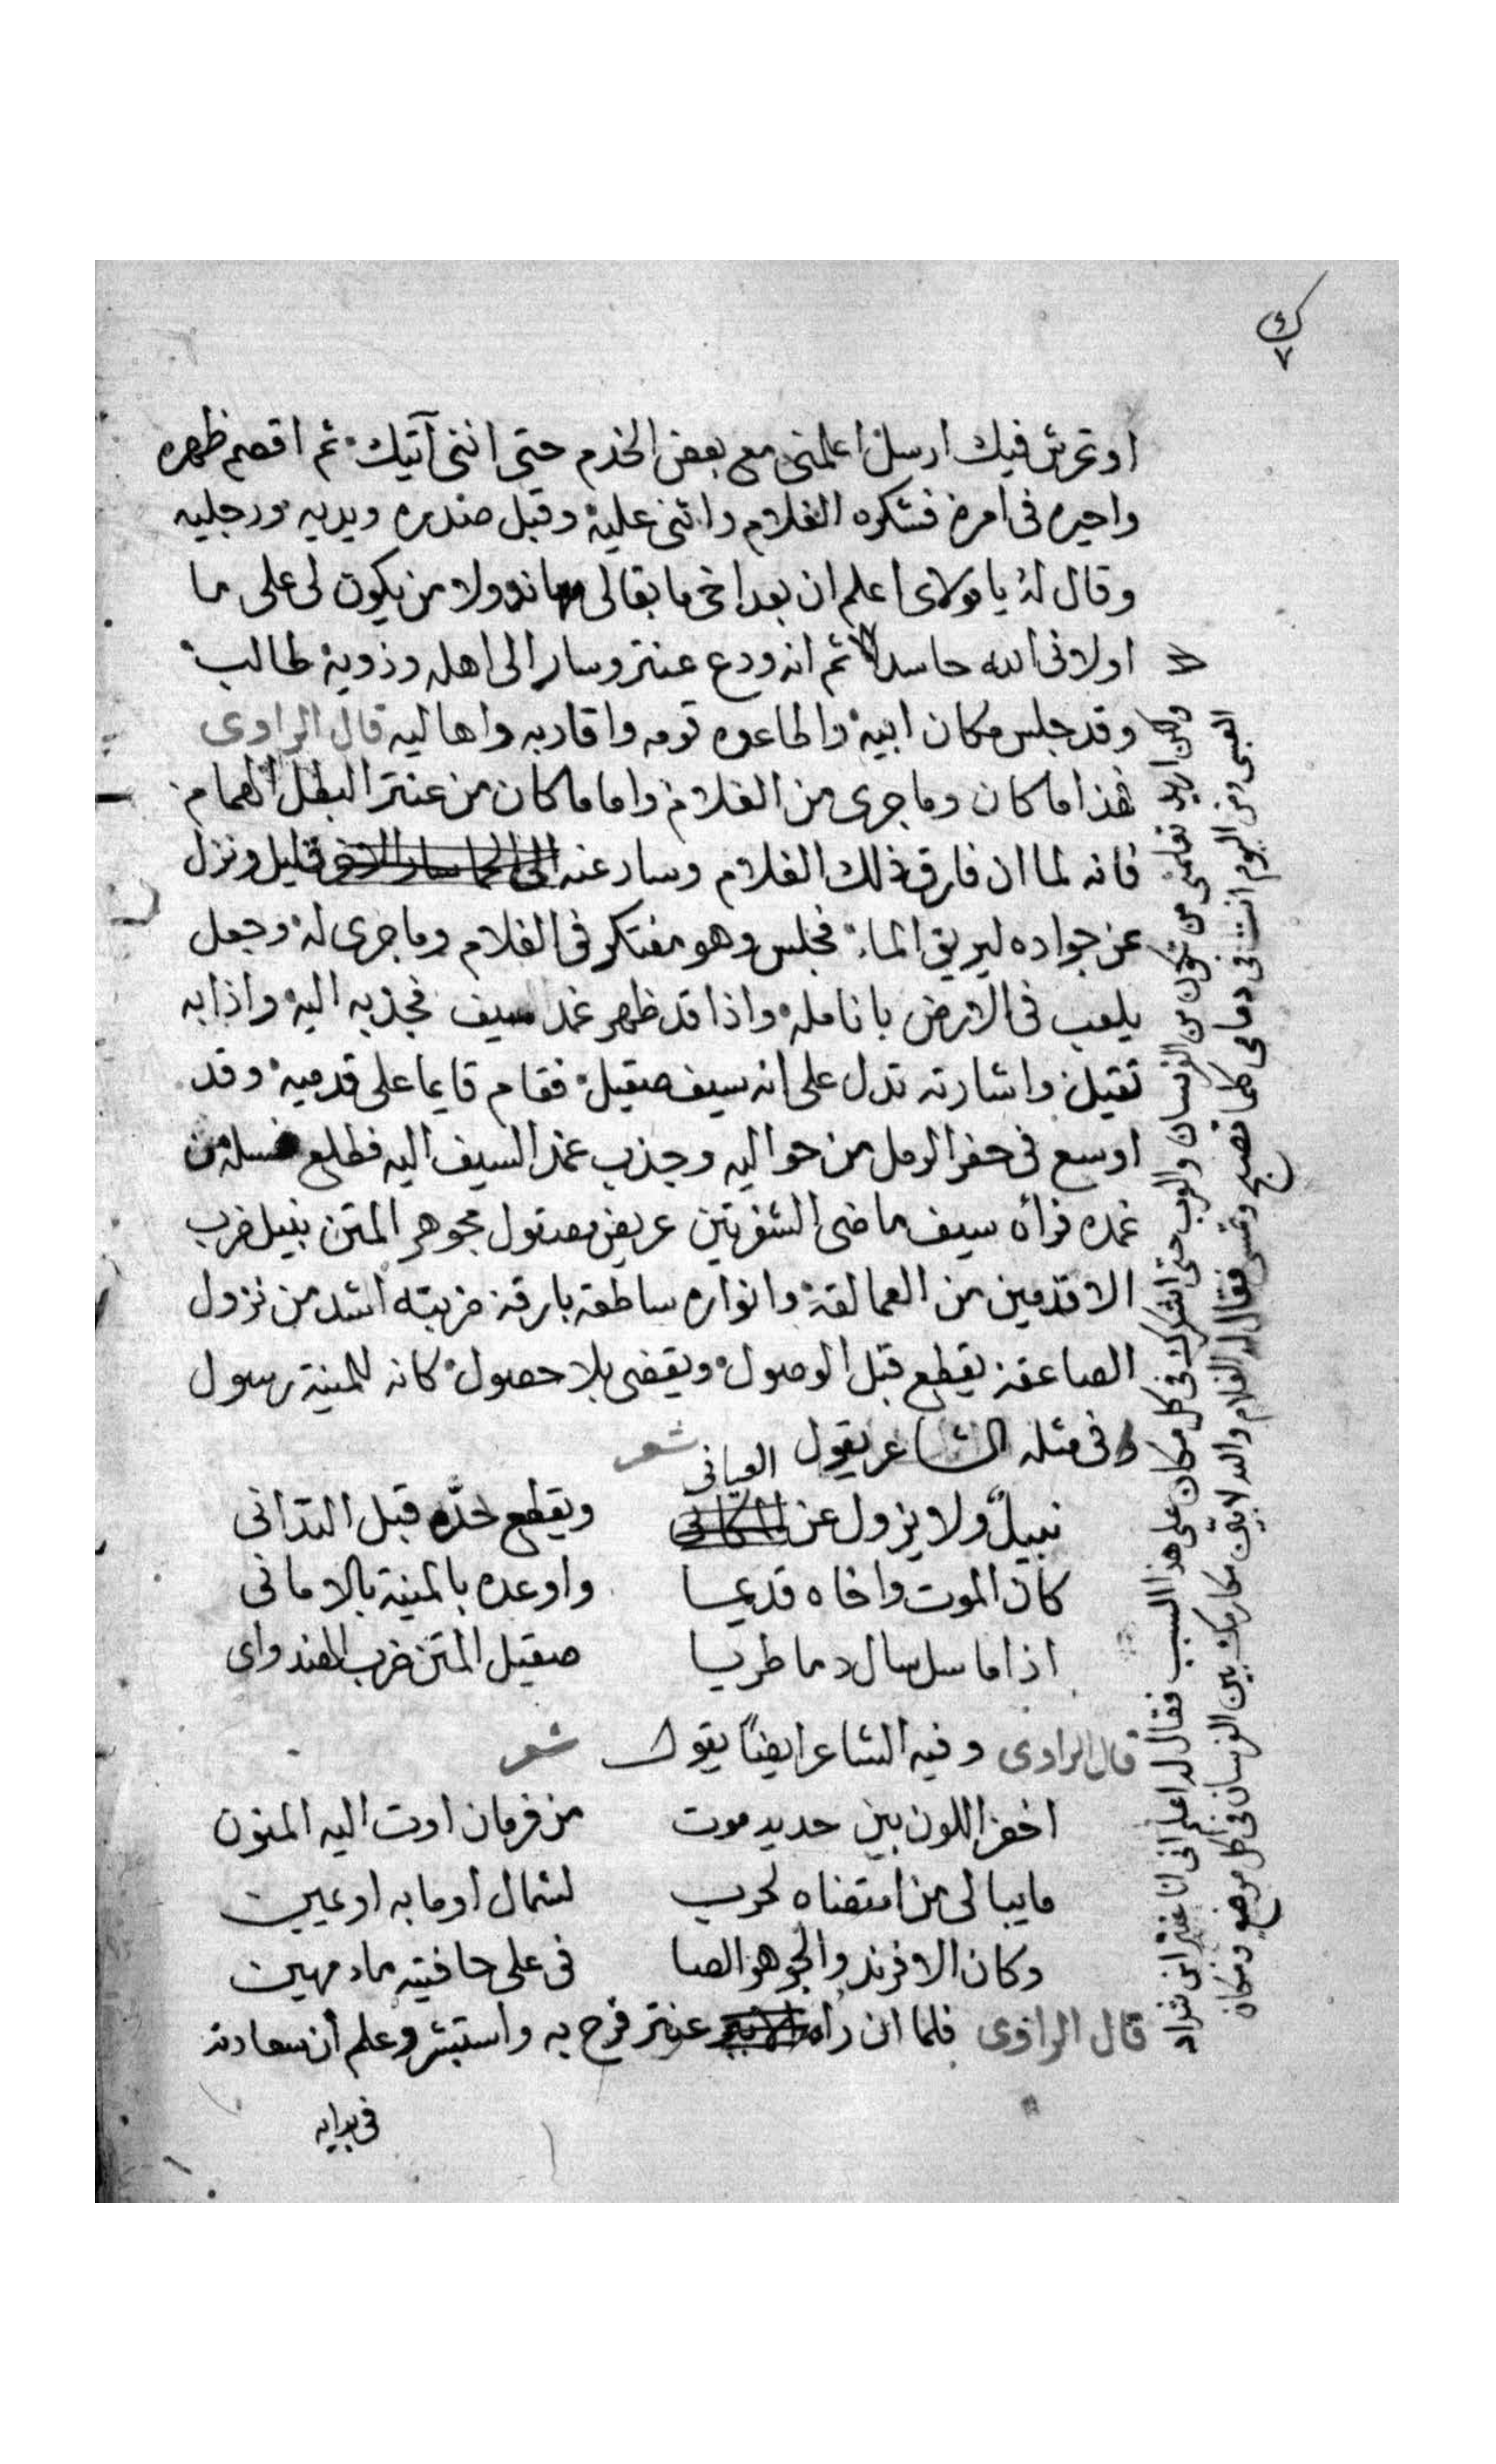 ك
٧
او تحرش فيك ارسل اعلمنى مع بعض الخدم حتى اننى آتيك ثم اقصم ظهره
واحيره فى امره فشكره الغلام واثنى عليه وقبل صدره ويديه ورجليه
وقال له يا مولاى اعلم ان بعد اخى ما بقا لى معاند ولا من يكون لى على ما
اولانى الله حاسد ثم انه ودع عنتر وسار الى اهله وذويه طالب
وقد جلس مكان ابيه واطاعوه قومه واقاربه واهاليه قال الراوى
هذا ما كان وما جرى من الغلام واما ما كان من عنتر البطل الهمام
فانه لما ان فارق ذلك الغلام وسار عنه قليل ونزل
عن جواده ليريق الماء فجلس وهو مفتكر فى الغلام وما جرى له وجعل
يلعب فى الارض بانامله واذا قد ظهر غمد سيف فجذبه اليه واذا به
ثقيل واشارته تدل على انه سيف صقيل فقام قايما على قدميه وقد
اوسع فى حفر الرمل من حواليه وجذب غمد السيف اليه فطلع فسله من
غمده فرأه سيف ماضى الشفرتين عريض مصقول مجوهر المتن نبيل ضرب
الاقدمين من العمالقة وانواره ساطعة بارقة ضربته اشد من نزول
الصاعقة يقطع قبل الوصول ويقضى بلا حصول كانه للمنية رسول
وفى مثله الشاعر يقول شعر
نبيل ولا يزول عن العيانى ويقطع حدّه قبل التدانى
كان الموت واخاه قديما واوعده بالمنية بالامانى
اذا ما سل سال دما طريا صقيل المتن ضرب الهندوانى
قال الراوى وفيه الشاعر ايضًا يقول شعر
اخضر اللون بين حديد موت من فرمان اوت اليه المنون
ما يبالى من انتضاه لحرب لشمال اوما به او يمين
وكان الافرند والجوهر الصا فى على حافتيه ماء مهين
قال الراوى فلما ان راه عنتر فرح به واستبشر وعلم ان سعادته
فى بدايه
ولكن اريد تعلمنى من تكون من الفرسان والعرب حتى اشكرك فى كل مكان على هذا السبب فقال له اعلم انى انا عنتر ابن شداد
العبسى ومن اليوم انت فى ذمامى كلما تصبح وتمسى فقال له الغلام والله لابقى مكارمك بين الفرسان فى كل موضع ومكان